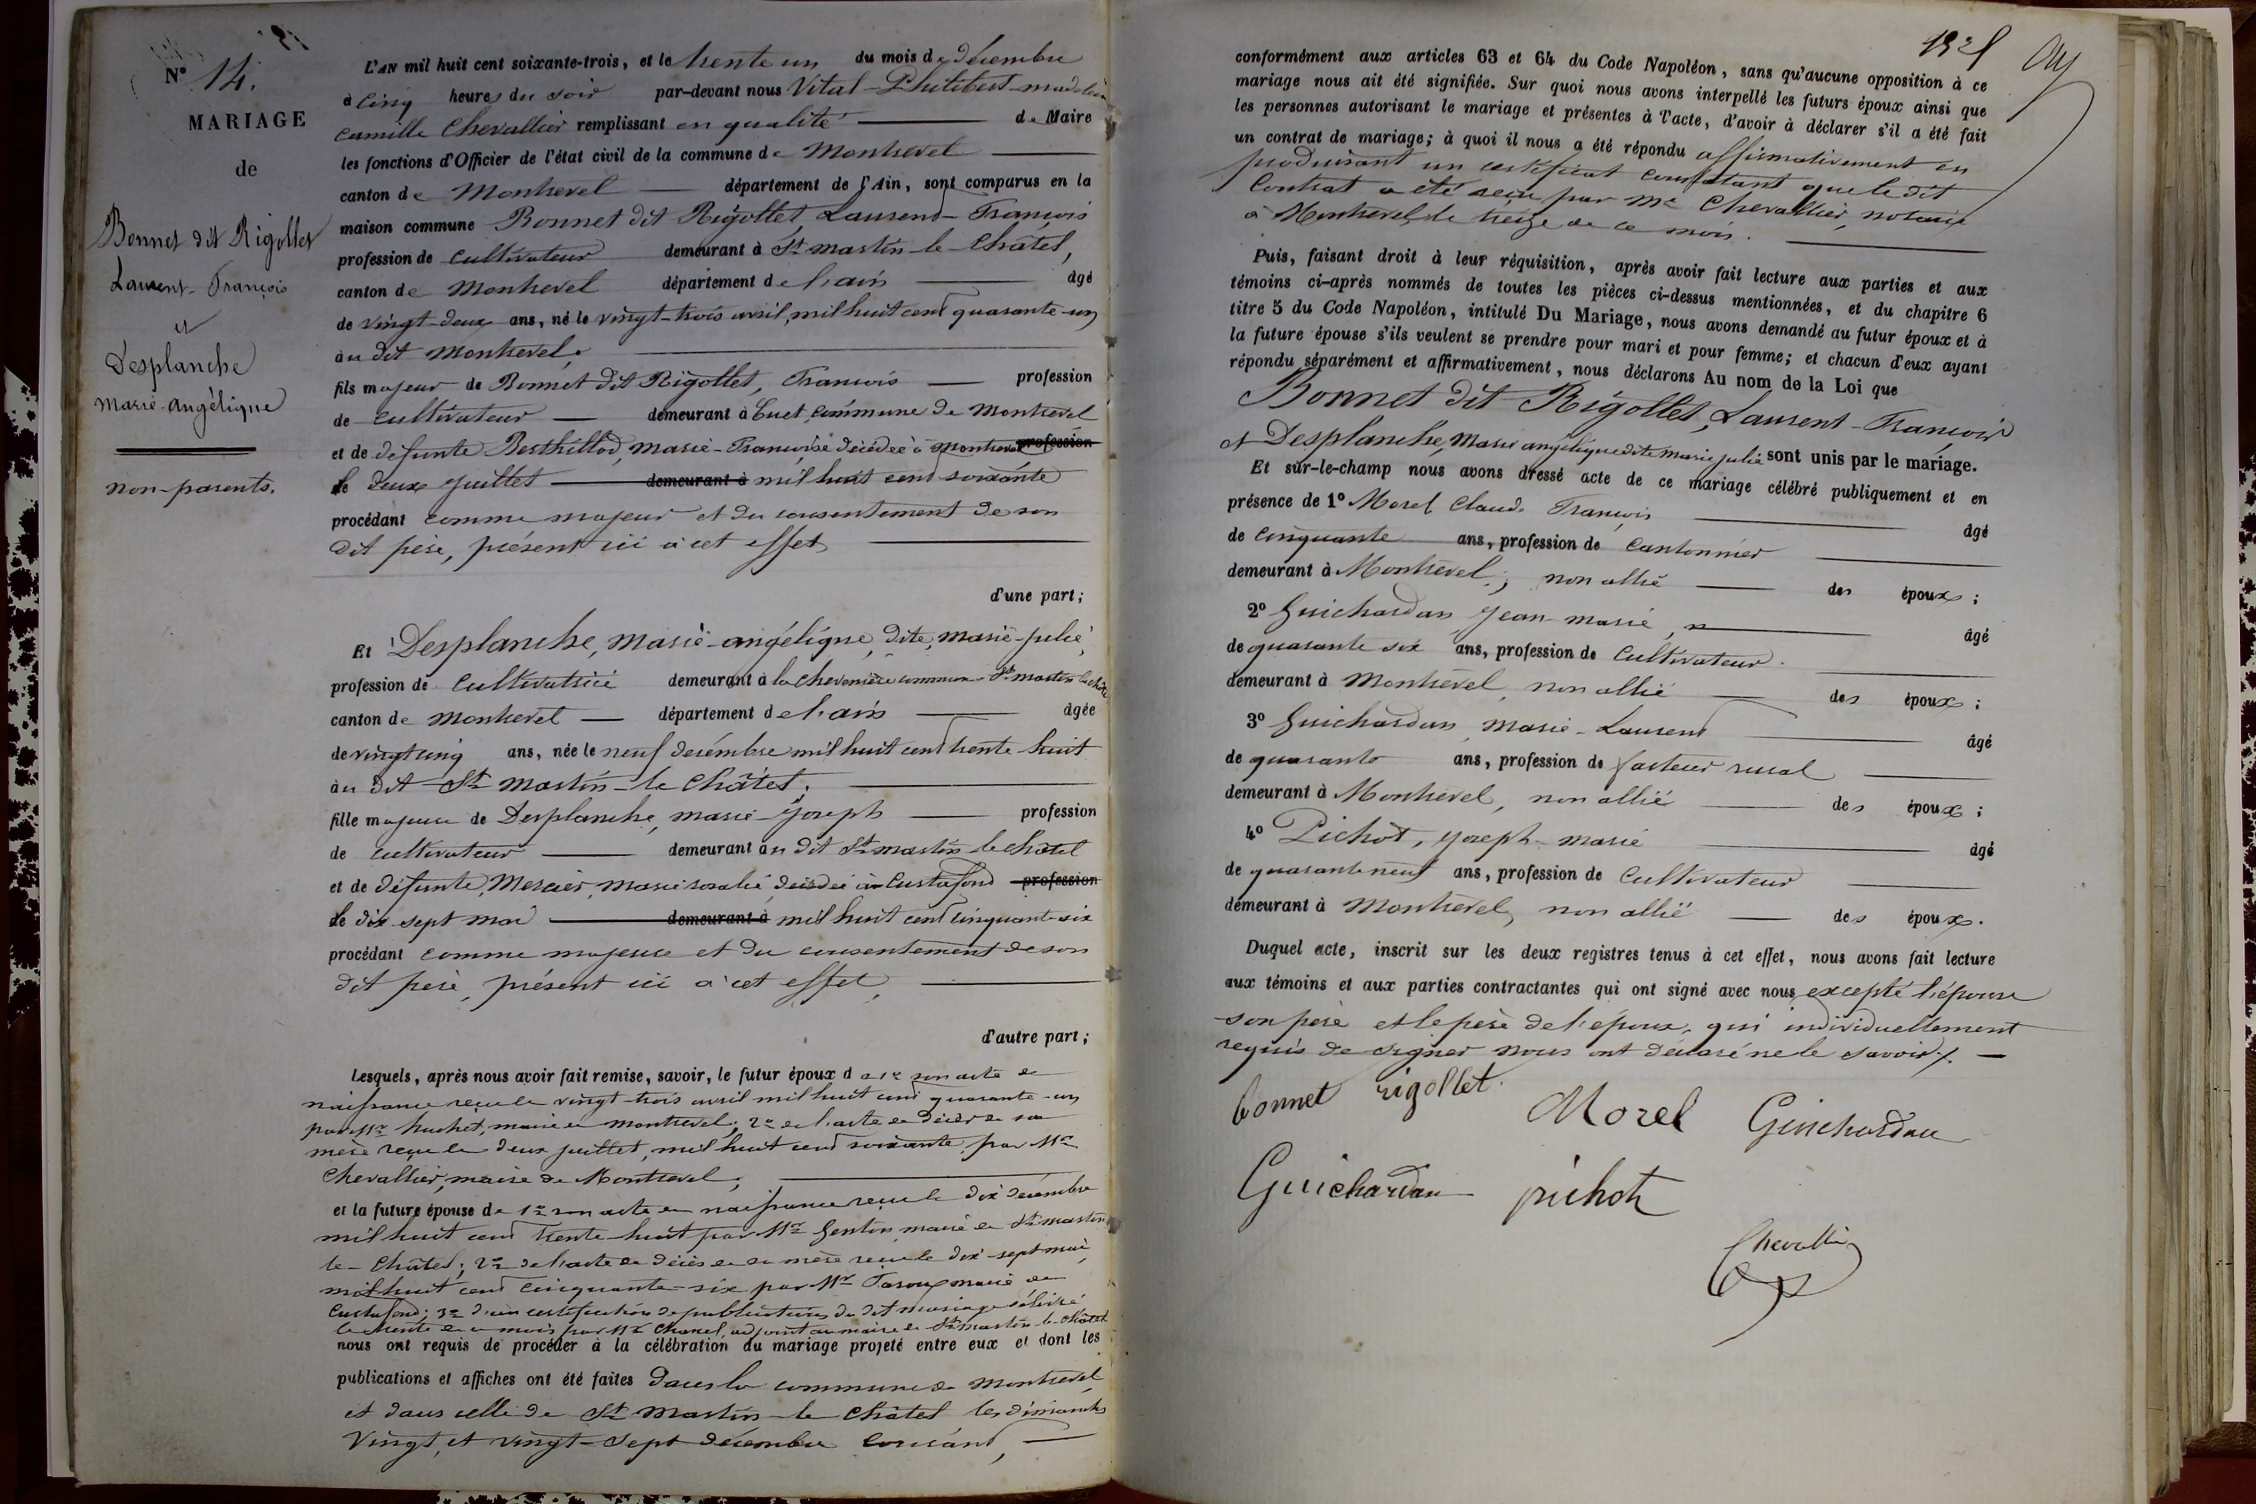 N° 14.
MARIAGE
de
Bonnet dit Rigollet
Laurent-François
et
Desplanche
Marie-angélique
non-parents.
L'AN mil huit cent soixante-trois, et le trente un du mois de décembre
à cinq heures du soir par-devant nous Vital-Philibert-
Camille Chevallier remplissant en qualité de Maire
les fonctions d'Officier de l'état civil de la commune de Montrevel
canton de Montrevel département de l'Ain, sont comparus en la
maison commune Bonnet dit Rigollet, Laurent-François
profession de cultivateur demeurant à St martin-le-Châtel,
canton de Montrevel département de l'ain âgé
de vingt-deux ans, né le vingt-trois avril, mil huit cent quarante-un
au dit Montrevel.
fils majeur de Bonnet dit Rigollet, François profession
de cultivateur demeurant à Cuet, commune de Montrevel
et de défunte Berthillod, marie-Françoise décédée à Montrevel profession
le deux juillet demeurant à mil huit cent soixante
procédant comme majeur et du consentement de son
dit père, présent ici à cet effet
d'une part;
Et Desplanche, marie-angélique, dite, marie-julie,
profession de cultivatrice demeurant à la chevonière commune St martin le châtel
canton de Montrevel département de l'ain âgée
de vingt cinq ans, née le neuf décembre mil huit cent trente-huit
au dit St Martin-le Châtel.
fille majeure de Desplanche, marie-Joseph profession
de cultivateur demeurant au dit St martin le châtel
et de défunte, Mercier, marie rosalie, décédée à Curtafond profession
le dix-sept mai demeurant à mil huit cent cinquante-six
procédant comme majeure et du consentement de son
dit père, présent ici à cet effet,
d'autre part;
Lesquels, après nous avoir fait remise, savoir, le futur époux de 1° son acte de
naissance reçu le vingt-trois avril mil huit cent quarante-un
par Mr huchet, maire de montrevel; 2° de l'acte de décès de sa
mère reçu le deux juillet, mil huit cent soixante, par Mr
Chevallier, maire de Montrevel;
et la future épouse de 1° son acte de naissance reçu le dix décembre
mil huit cent trente-huit par Mr Genton maire de St martin
le-Châtel; 2° de l'acte de décès de sa mère reçu le dix-sept mai,
mil huit cent cinquante-six par Mr maire de
Curtafond; 3° d'un certificat de publications du dit mariage délivré
le trente de ce mois par Mr Chanel, adjoint au maire de St martin-le-châtel
nous ont requis de procéder à la célébration du mariage projeté entre eux et dont les
publications et affiches ont été faites dans la commune de Montrevel
et dans celle de St Martin-le Châtel les dimanches
Vingt, et vingt-sept décembre courant,
conformément aux articles 63 et 64 du Code Napoléon, sans qu'aucune opposition à ce
mariage nous ait été signifiée. Sur quoi nous avons interpellé les futurs époux ainsi que
les personnes autorisant le mariage et présentes à l'acte, d'avoir à déclarer s'il a été fait
un contrat de mariage; à quoi il nous a été répondu affirmativement en
produisant un certificat constatant que le dit
Contrat a été reçu par Me Chevallier, notaire
à Montrevel, le treize de ce mois.
Puis, faisant droit à leur réquisition, après avoir fait lecture aux parties et aux
témoins ci-après nommés de toutes les pièces ci-dessus mentionnées, et du chapitre 6
titre 5 du Code Napoléon, intitulé Du Mariage, nous avons demandé au futur époux et à
la future épouse s'ils veulent se prendre pour mari et pour femme; et chacun d'eux ayant
répondu séparément et affirmativement, nous déclarons Au nom de la Loi que
Bonnet dit Rigollet, Laurent-François
et Desplanche, Marie angélique dite marie julie sont unis par le mariage.
Et sur-le-champ nous avons dressé acte de ce mariage célébré publiquement et en
présence de 1° Morel Claude François âgé
de cinquante ans, profession de Cantonnier
demeurant à Montrevel; non allié des époux;
2° Guichardan Jean-marie, âgé
de quarante six ans, profession de Cultivateur.
demeurant à Montrevel, non allié des époux;
3° Guichardan, Marie-Laurent âgé
de quarante ans, profession de facteur rural
demeurant à Montrevel, non allié des époux;
4° Pichot, Joseph-marie âgé
de quarante neuf ans, profession de Cultivateur
demeurant à Montrevel, non allié des époux.
Duquel acte, inscrit sur les deux registres tenus à cet effet, nous avons fait lecture
aux témoins et aux parties contractantes qui ont signé avec nous excepté l'épouse
son père et le père de l'époux, qui individuellement
requis de signer nous ont déclaré ne le savoir.
bonnet rigollet.
Morel Guichardan
Guichardan pichot
Chevallier